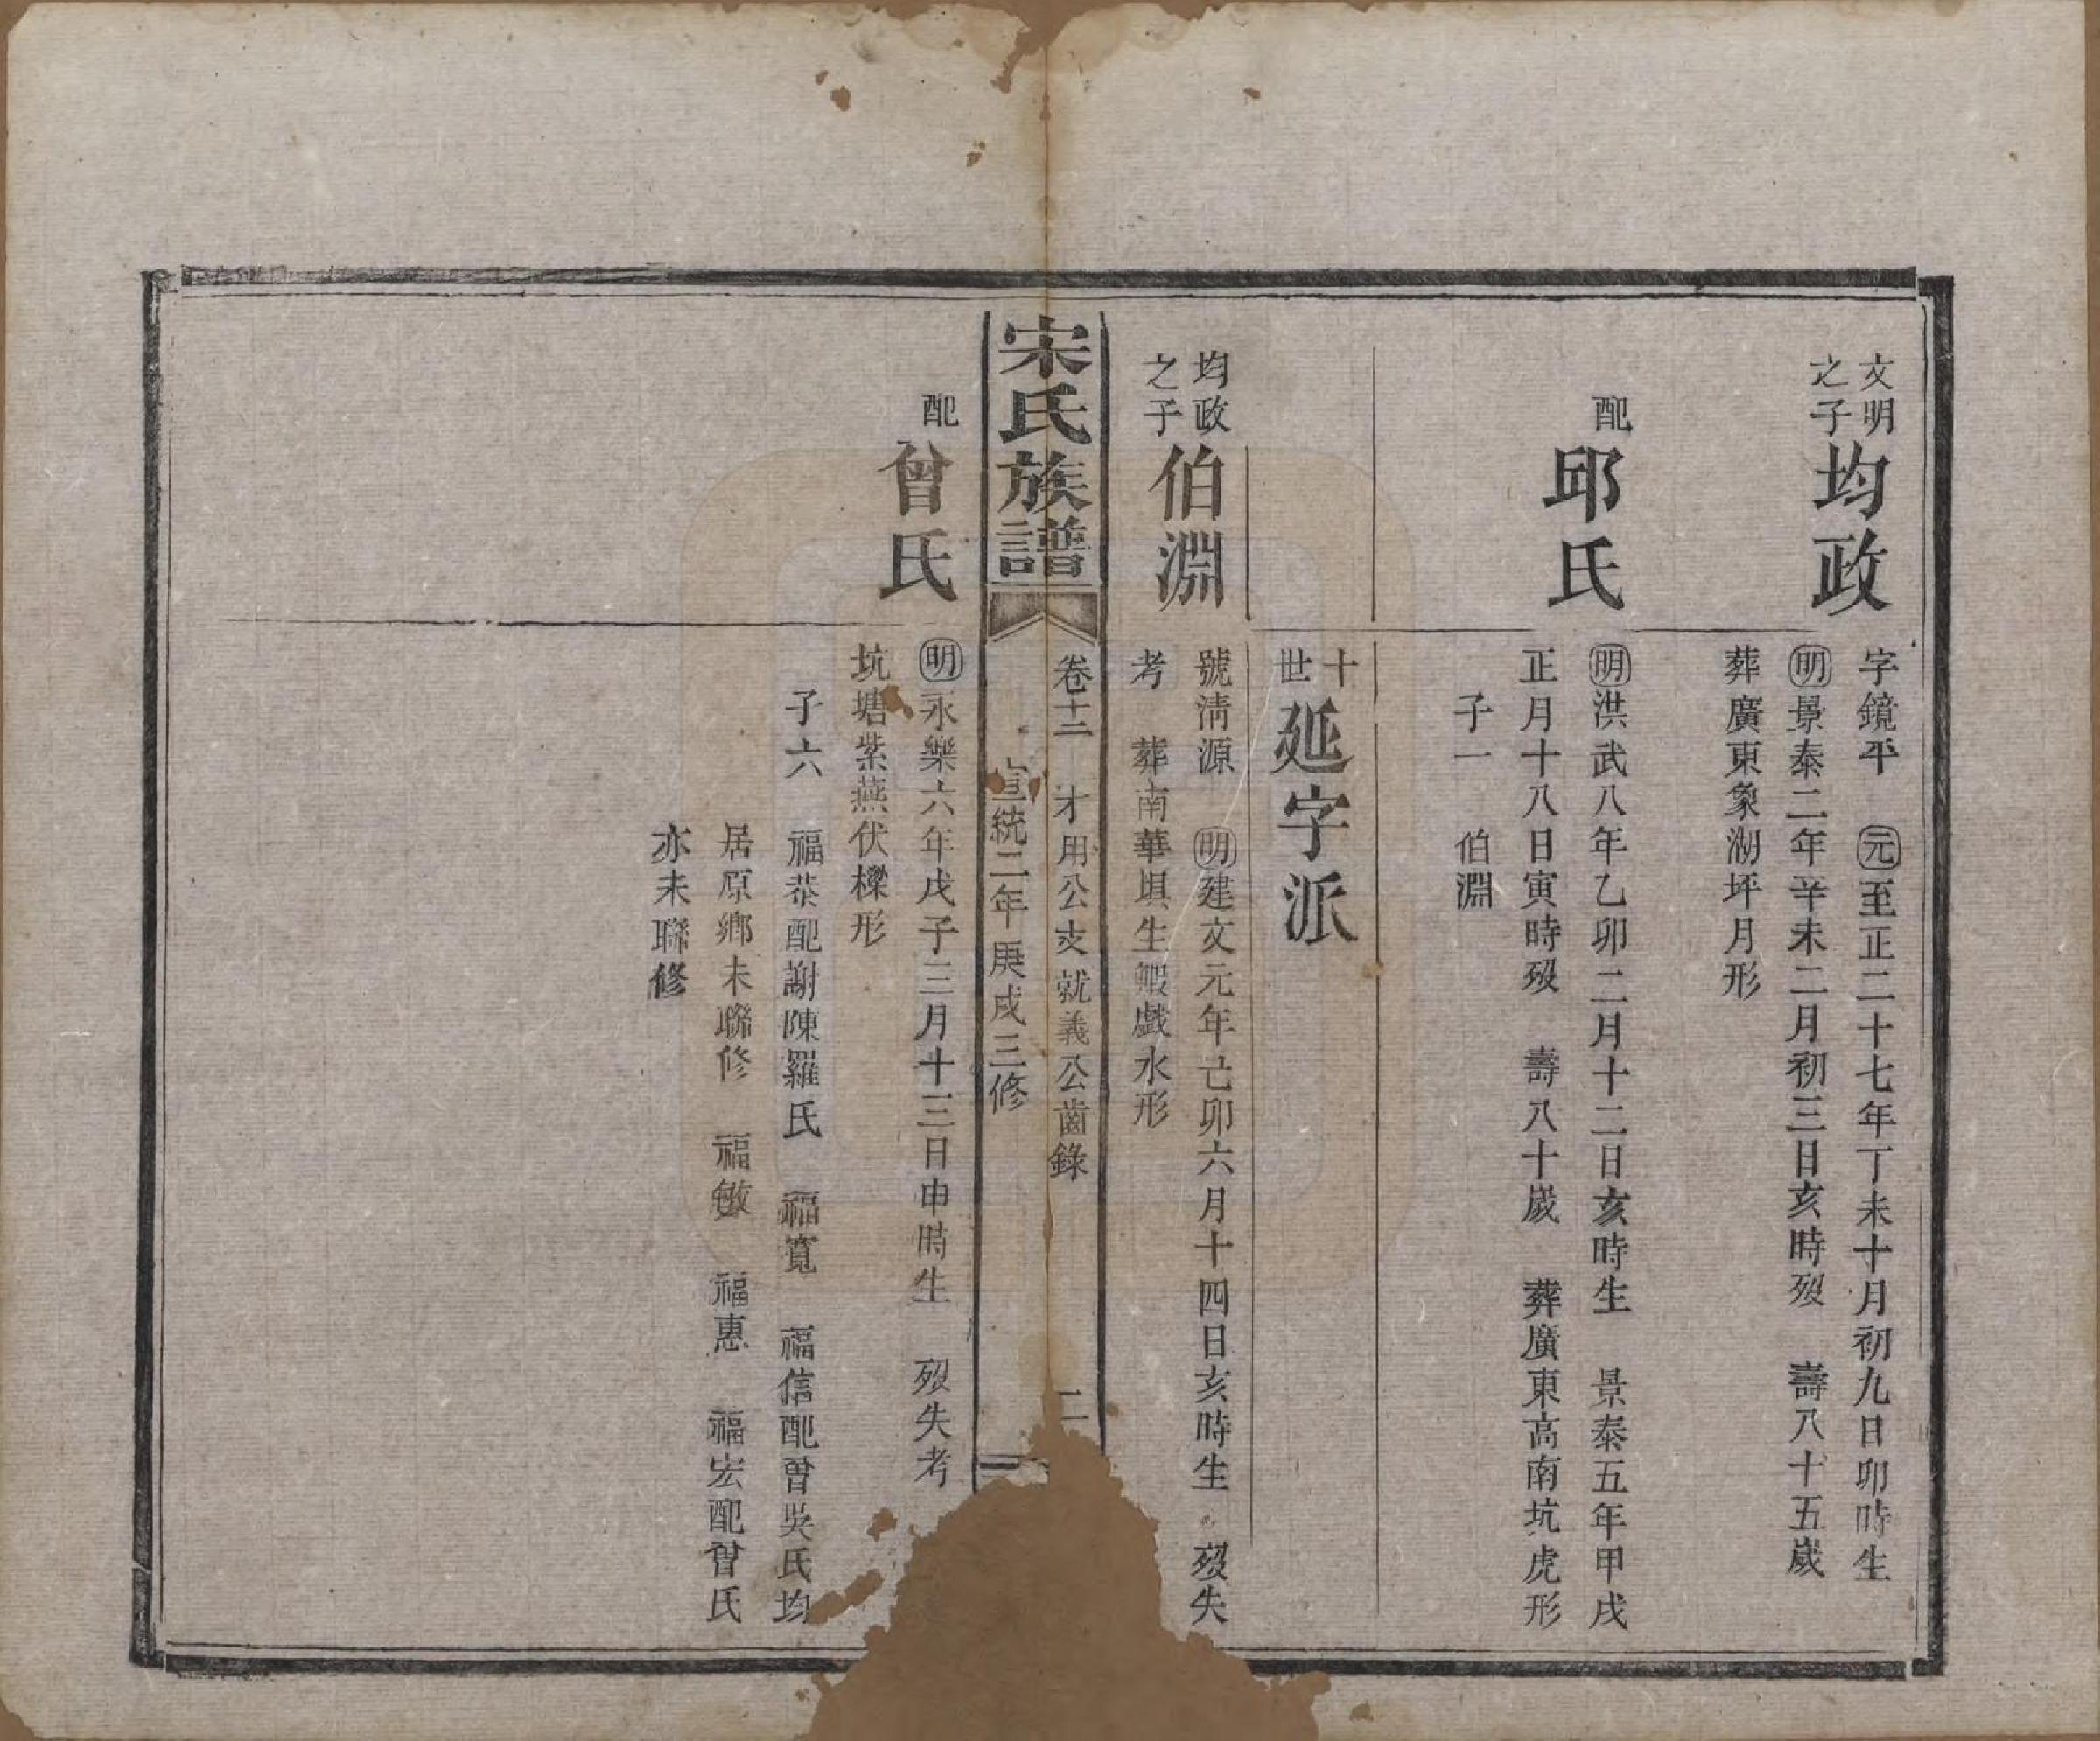 文明
之子
均政
字鏡平　元至正二十七年丁未十月初九日卯時生
明景泰二年辛未二月初三日亥時歿　壽八十五歲
葬廣東象湖坪月形
配
邱氏
明洪武八年乙卯二月十二日亥時生　景泰五年甲戌
正月十八日寅時歿　壽八十歲　葬廣東高南坑虎形
子一　伯淵
十
世
延字派
均政
之子
伯淵
號淸源　明建文元年己卯六月十四日亥時生　歿失
考　葬南華埧生蝦戲水形
宋氏族譜
卷十二　才用公支就義公齒錄　二
宣統二年庚戌三修
配
曾氏
明永樂六年戊子三月十三日申時生　歿失考
坑塘紫燕伏樑形
子六　福恭配謝陳羅氏　福寬　福信配曾吳氏均
居原鄉未聯修　福敏　福惠　福宏配曾氏
亦未聯修